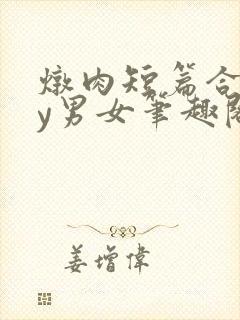 燉肉短篇合
y男女筆趣閣
姜增偉